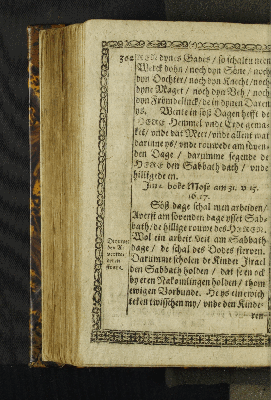 HERN dynes Gades / so schaltu neen
Werck dohn / noch dyn Söne / noch
dyn Dochter / noch dyn Knecht / noch
dyne Maget / noch dyn Veh / noch
dyn Frömdelinck / de in dynen Daren
ys. Wente in söß Dagen hefft de
HERE Hemmel unde Erde gema-
ket / unde dat Meer / unde allent wat
darinne ys / unde rouwede am söven-
den Dage / darumme segende de
HERE den Sabbath dach / unde
hilligede en.
Im 2. boke Mose am 31. v. 15.
16. 17.
Söß dage schal men arbeiden /
Averst am sövenden dage ysset Sab-
bath / de hillige rouwe des HEREN.
Wol ein arbeit deit am Sabbath
dage / de schal des Dodes sterven.
Darumme scholen de Kinder Israel
den Sabbath holden / dat se en ock
by eren Nakömlingen holden / thom
ewigen Vorbunde. He ys ein ewich
teken twisschen my / unde den Kinde-
ren